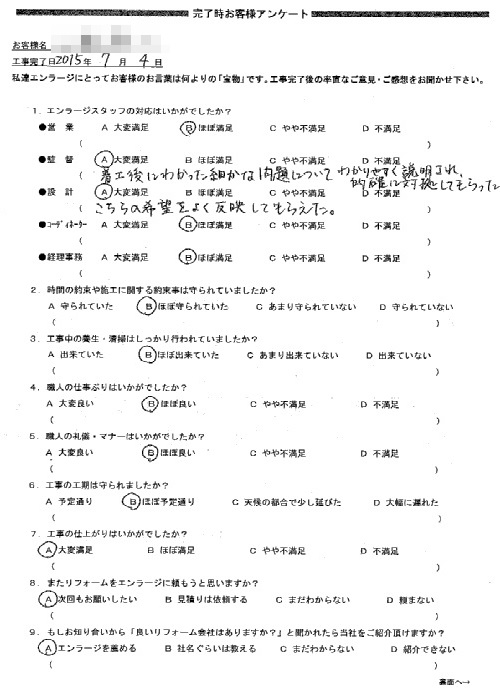 完了時お客様アンケート
お客様名
工事完了日 2015年 7月 4日
私達エンラージにとってお客様のお言葉は何よりの「宝物」です。工事完了後の率直なご意見・ご感想をお聞かせ下さい。
1.エンラージスタッフの対応はいかがでしたか?
●営 業 A 大変満足 B ほぼ満足 C やや不満足 D 不満足
( )
●監 督 A 大変満足 B ほぼ満足 C やや不満足 D 不満足
(着工後にわかった細かな問題についてわかりやすく説明され、的確に対処してもらった)
●設 計 A 大変満足 B ほぼ満足 C やや不満足 D 不満足
(こちらの希望をよく反映してもらえた。)
●コーディネーター A 大変満足 B ほぼ満足 C やや不満足 D 不満足
( )
●経理事務 A 大変満足 B ほぼ満足 C やや不満足 D 不満足
( )
2.時間の約束や施工に関する約束事は守られていましたか?
A 守られていた B ほぼ守られていた C あまり守られていない D 守られていない
( )
3.工事中の養生・清掃はしっかり行われていましたか?
A 出来ていた B ほぼ出来ていた C あまり出来ていない D 出来ていない
( )
4.職人の仕事ぶりはいかがでしたか?
A 大変良い B ほぼ良い C やや不満足 D 不満足
( )
5.職人の礼儀・マナーはいかがでしたか?
A 大変良い B ほぼ良い C やや不満足 D 不満足
( )
6.工事の工期は守られましたか?
A 予定通り B ほぼ予定通り C 天候の都合で少し延びた D 大幅に遅れた
( )
7.工事の仕上がりはいかがでしたか?
A 大変満足 B ほぼ満足 C やや不満足 D 不満足
( )
8.またリフォームをエンラージに頼もうと思いますか?
A 次回もお願いしたい B 見積りは依頼する C まだわからない D 頼まない
( )
9.もしお知り合いから「良いリフォーム会社はありますか?」と聞かれたら当社をご紹介頂けますか?
A エンラージを薦める B 社名ぐらいは教える C まだわからない D 紹介できない
( )
裏面へ→